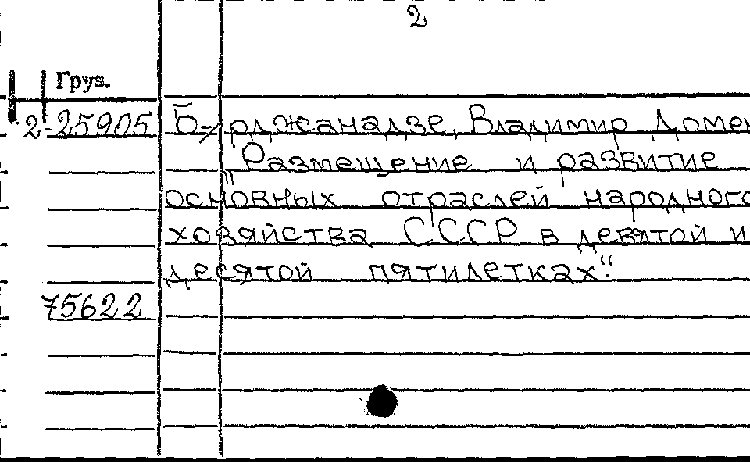 2
Груз.
2-25905 Бурджанадзе, Владимир Домен
"Размещение и развитие
основных отраслей народного
хозяйства СССР в девятой и
десятой пятилетках".
75622